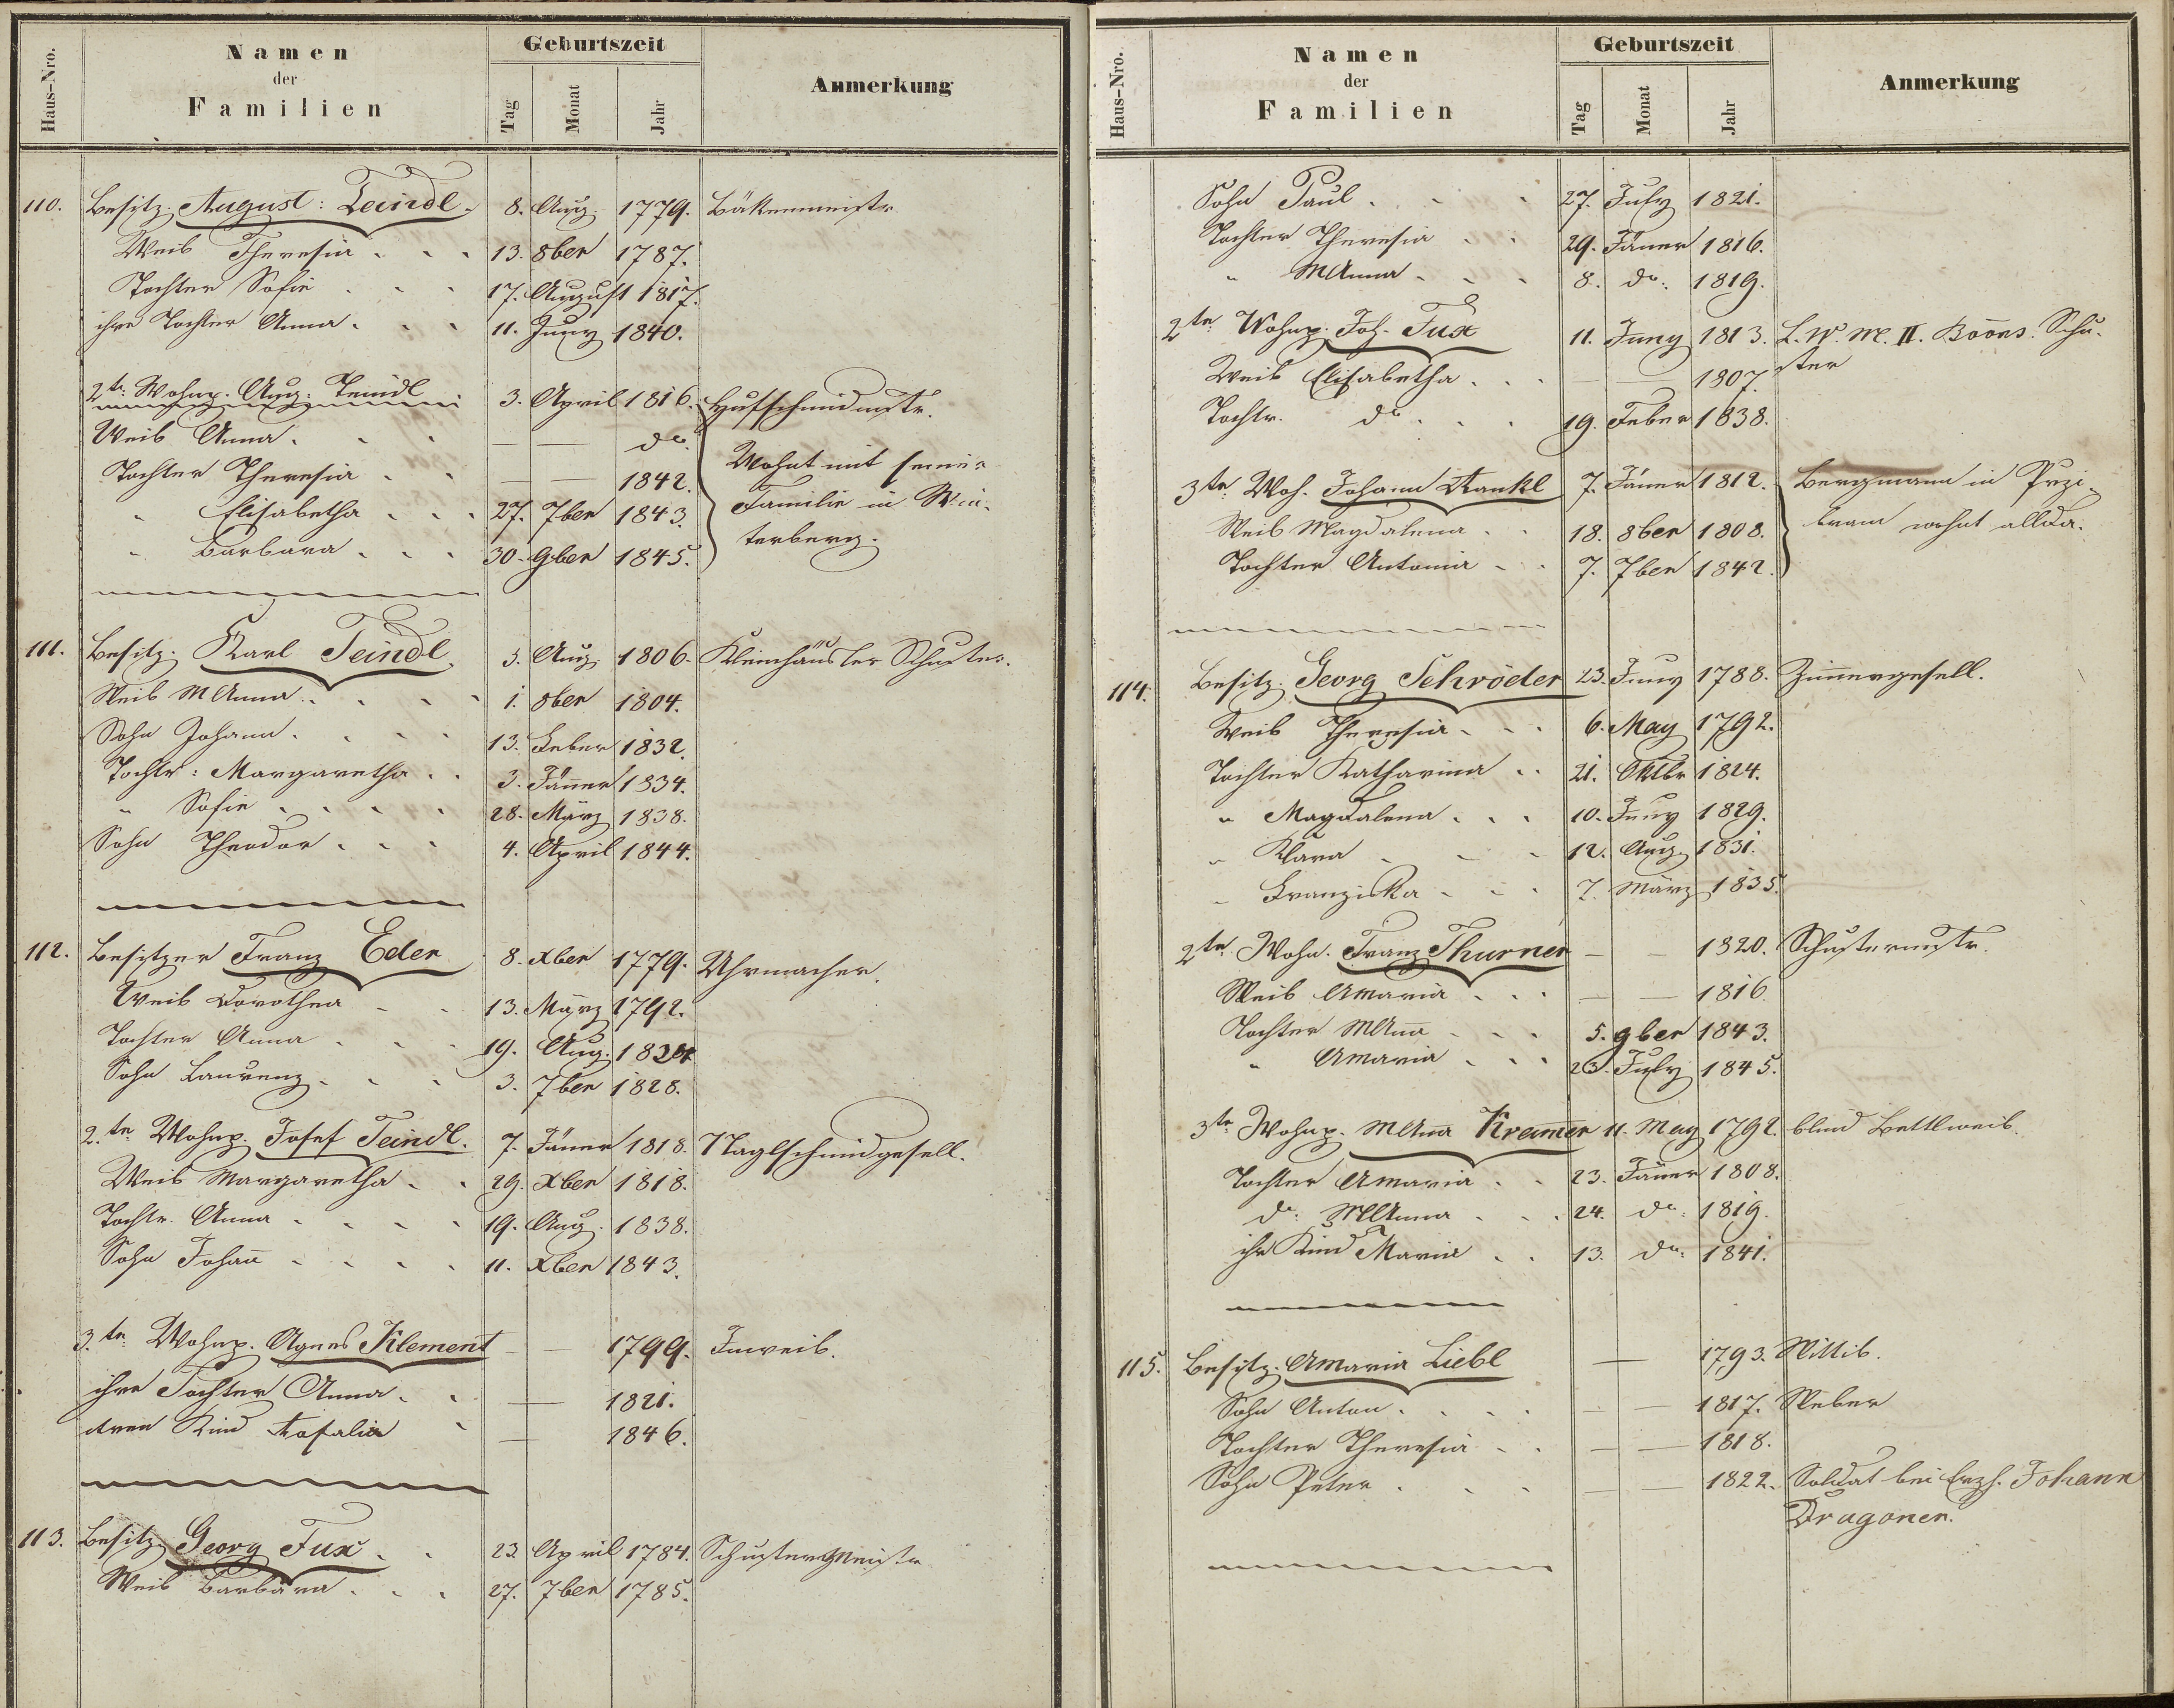 Haus-Nro.
Namen
der
Familien
Geburtszeit
Tag
Monat
Jahr
Anmerkung
110. Besitz. August: Teindl. 8. Aug. 1779. Bäkenmeistr.
Weib Theresia 13. 8ber 1787.
Tochter Sofie 17. August 1817.
ihre Tochter Anna 11. Juny 1840.
2te Wohnp. Aug. Teindl 3. April 1816. Hufschmidmstr.
Weib Anna — — do.
Tochter Theresia — — 1842. Wohnt mit seiner
" Elisabetha 27. 7ber 1843. Familie in Win-
" Barbara 30. 9ber 1845. terberg.
111. Besitz. Karl Teindl. 3. Aug. 1806. Kleinhäusler Schuster.
Weib MAnna 1. 8ber 1804.
Sohn Johann 13. Feber 1832.
Tochtr: Margaretha 3. Jänner 1834.
" Sofie 28. März 1838.
Sohn Theodor 4. April 1844.
112. Besitzer Franz Eder 8. Xber 1779. Uhrmacher.
Weib Dorothea 13. März 1792.
Tochter Anna 19. Aug. 1824
Sohn Laurenz 3. 7ber 1828.
2.te Wohnp. Josef Teindl. 7. Jäner 1818. Naglschmidgesell.
Weib Margaretha 29. Xber 1818.
Tochtr. Anna 19. Aug. 1838.
Sohn Johañ 11. Xber 1843.
3.te Wohnp. Agnes Klement — — 1799. Inweib.
ihre Tochter Anna — 1821.
deren Kind Rosalia — 1846.
113. Besitz. Georg Fux 23. April 1784. Schustermeistr
Weib Barbara 27. 7ber 1785.
Haus-Nro.
Namen
der
Familien
Geburtszeit
Tag
Monat
Jahr
Anmerkung
Sohn Paul 27. July 1821.
Tochter Theresia 29. Jäner 1816.
" MAnna 8. do. 1819.
2te Wohnp. Joh. Fux 11. Juny 1813. L. W. M. II. Baons. Schu-
Weib Elisabetha — — 1807. ster
Tochtr. do. 19. Feber 1838.
3te Woh. Johann Rankl 7. Jäner 1812. Bergmann in Przi-
Weib Magdalena 18. 8ber 1808. bram wohnt allda.
Tochter Antonia 7. 7ber 1842.
114. Besitz. Georg Schröder 23. Juny 1788. Zim̃ergesell.
Weib Theresia 6. May 1792.
Tochter Katharina 21. Oktbr 1824.
" Magdalena 10. Juny 1829.
" Klara 12. Aug. 1831.
" Franziska 7. März 1835.
2te Wohn. Franz Thurner — — 1820. Schustermstr.
Weib AMaria — — 1816.
Tochter MAña 5. 9ber 1843.
" AMaria 23. July 1845.
3te Wohnp. MAña Kram̃er 11. May 1792. blind Bettlweib.
Tochter AMaria 23. Jäner 1808.
do: MAnna 24. do: 1819.
ihr Kind Maria 13. do. 1841.
115. Besitz. AMaria Liebl — 1793. Wittib.
Sohn Anton — — 1817. Weber
Tochter Theresia — — 1818.
Sohn Peter — — 1822. Soldat bei Erzh. Johann
Dragoner.